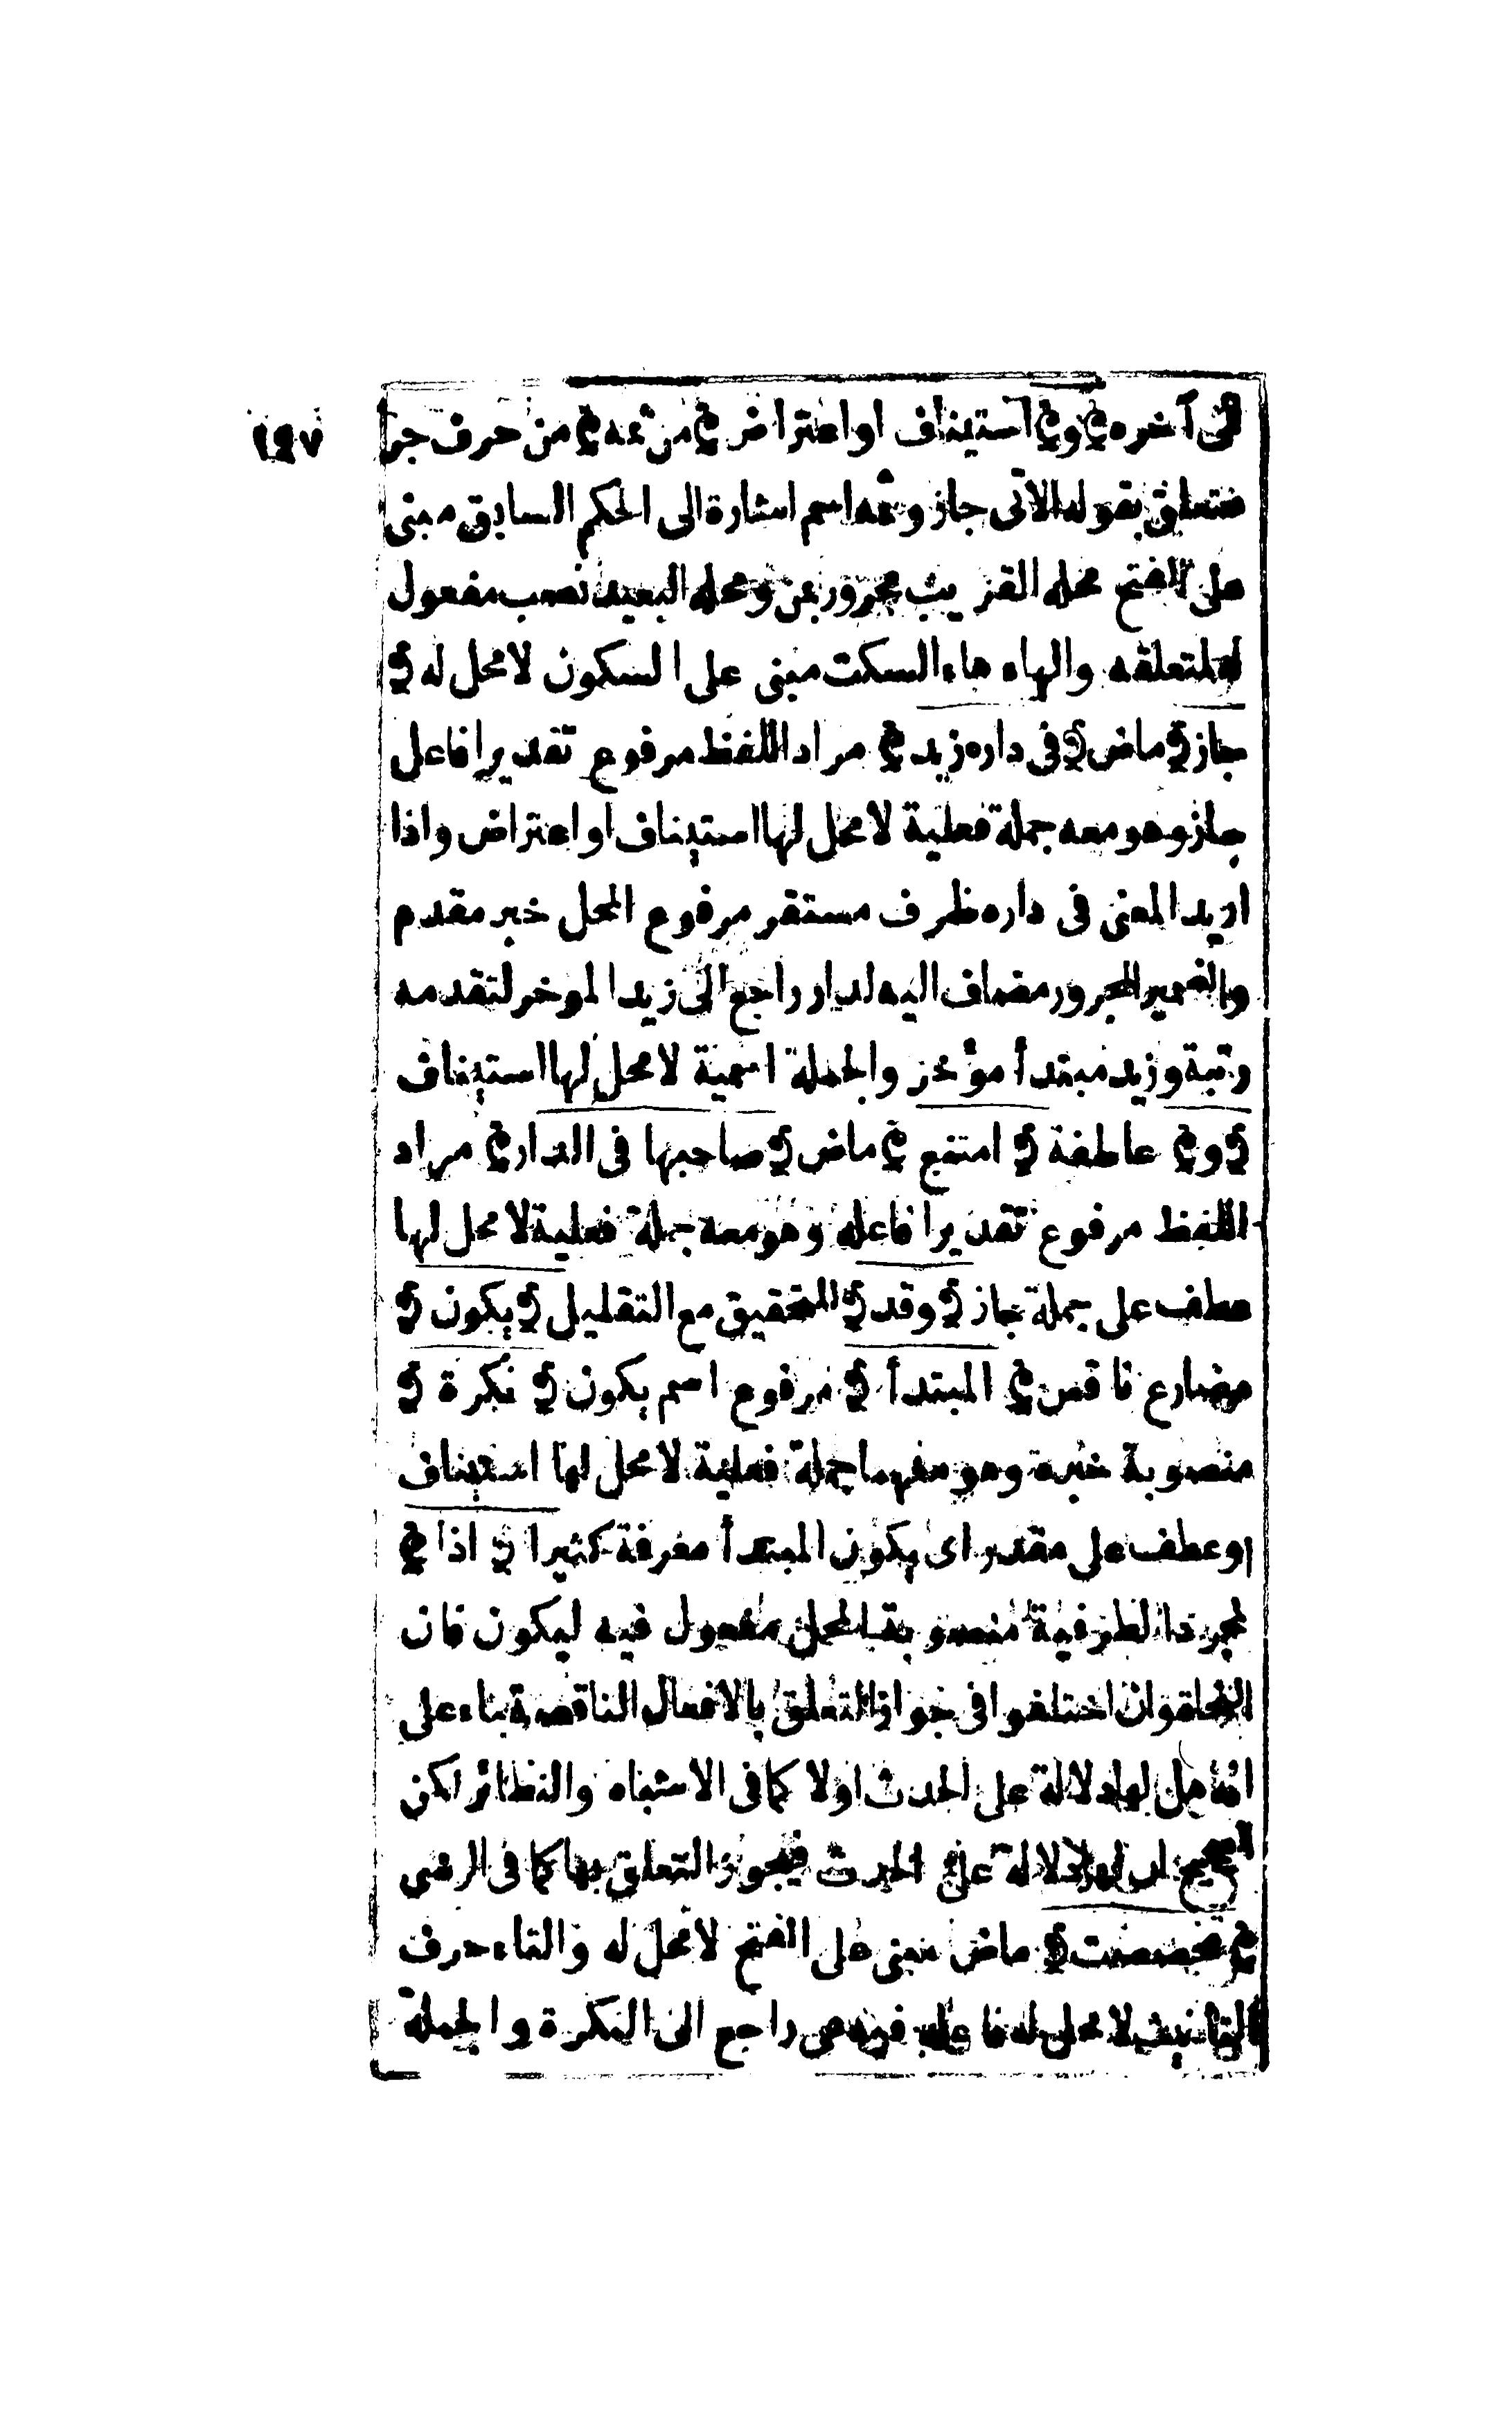 ١٩٧
الى آخره ﴾ و ﴿ استيناف او اعتراض ﴿ من ثمه ﴾ من حرف جر
متعلق بقوله الآتى جاز وثمه اسم اشارة الى الحكم السابق مبنى
على الفتح محله القريب مجرور بمن ومحله البعيد نصب مفعول
له لمتعلقه والهاء هاء السكت مبنى على السكون لا محل له ﴿
جاز ﴾ ماض ﴿ فى داره زيد ﴾ مراد اللفظ مرفوع تقديرا فاعل
جاز وهو معه جملة فعلية لا محل لها استيناف او اعتراض واذا
اريد المعنى فى داره ظرف مستقر مرفوع المحل خبر مقدم
والضمير المجرور مضاف اليه لدار راجع الى زيد الموخر لتقدمه
رتبة وزيد مبتدأ مؤخر والجملة اسمية لا محل لها استيناف
﴿ و ﴾ عاطفة ﴿ امتنع ﴾ ماض ﴿ صاحبها فى الدار ﴾ مراد
اللفظ مرفوع تقديرا فاعله وهو معه جملة فعلية لا محل لها
عطف على جملة جاز ﴿ وقد ﴾ للتحقيق مع التقليل ﴿ يكون ﴾
مضارع ناقص ﴿ المبتدأ ﴾ مرفوع اسم يكون ﴿ نكرة ﴾
منصوبة خبره وهو معهما جملة فعلية لا محل لها استيناف
اوعطف على مقدر اى يكون المبتدأ معرفة كثيرا ﴿ اذا ﴾
لمجرد الظرفية منصوبة المحل مفعول فيه ليكون فان
النحاة وان اختلفوا فى جواز التعلق بالافعال الناقصة بناء على
انه هل لها دلالة على الحدث اولا كما فى الاشباه والنظائر لكن
الصحيح ان لها دلالة على الحدث فيجوز التعلق بها كما فى الرضى
﴿ تخصصت ﴾ ماض مبنى على الفتح لا محل له والتاء حرف
التأنيث لا محل له فاعله فيه هى راجع الى النكرة والجملة